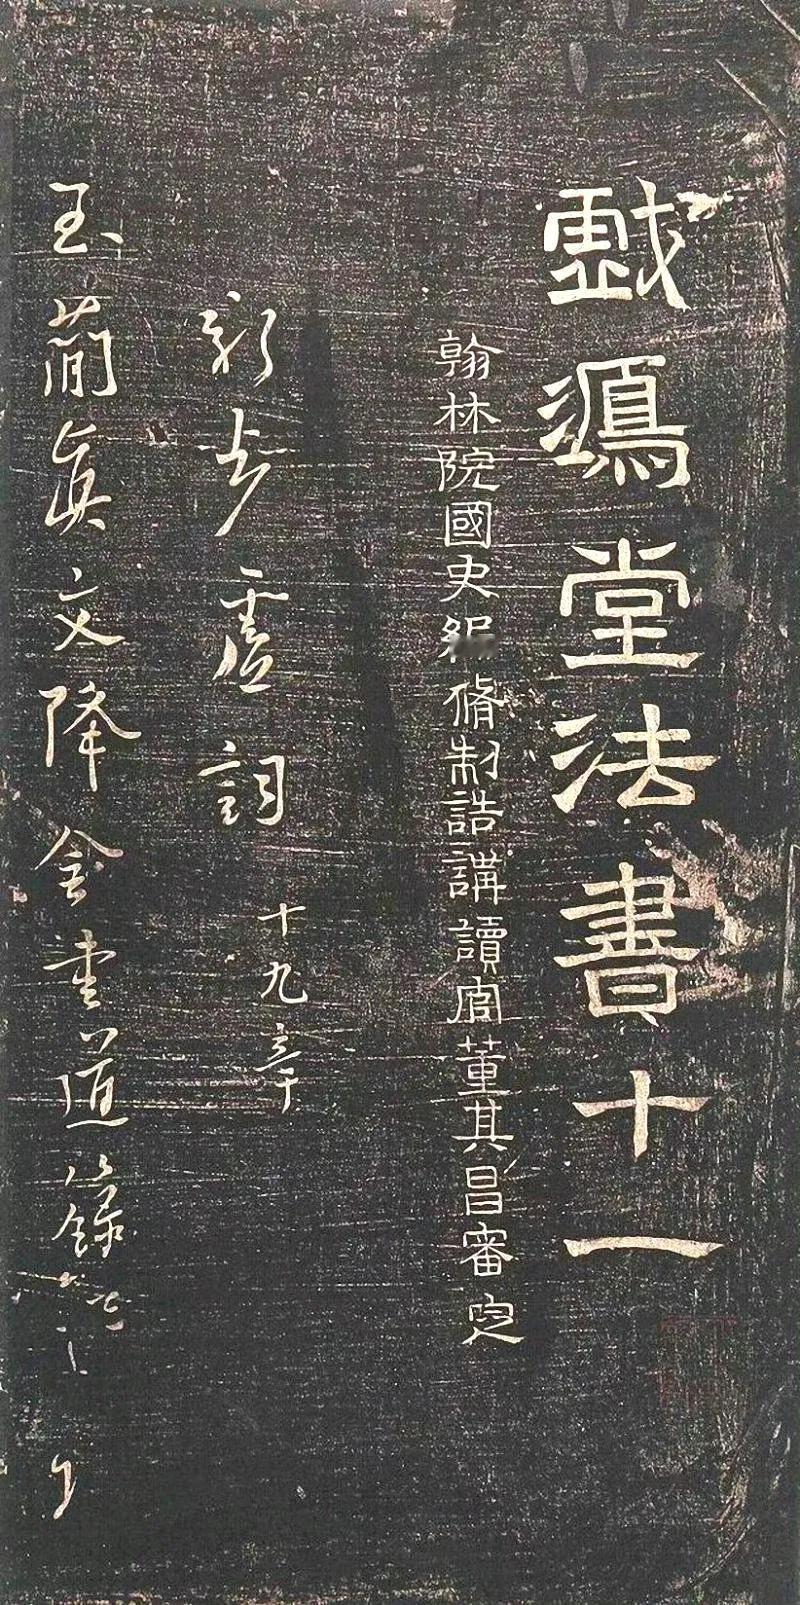 戲鴻堂法書十一
翰林院國史編脩制誥講讀官董其昌審定
新步虛詞 十九章
玉簡真文降金書道籙